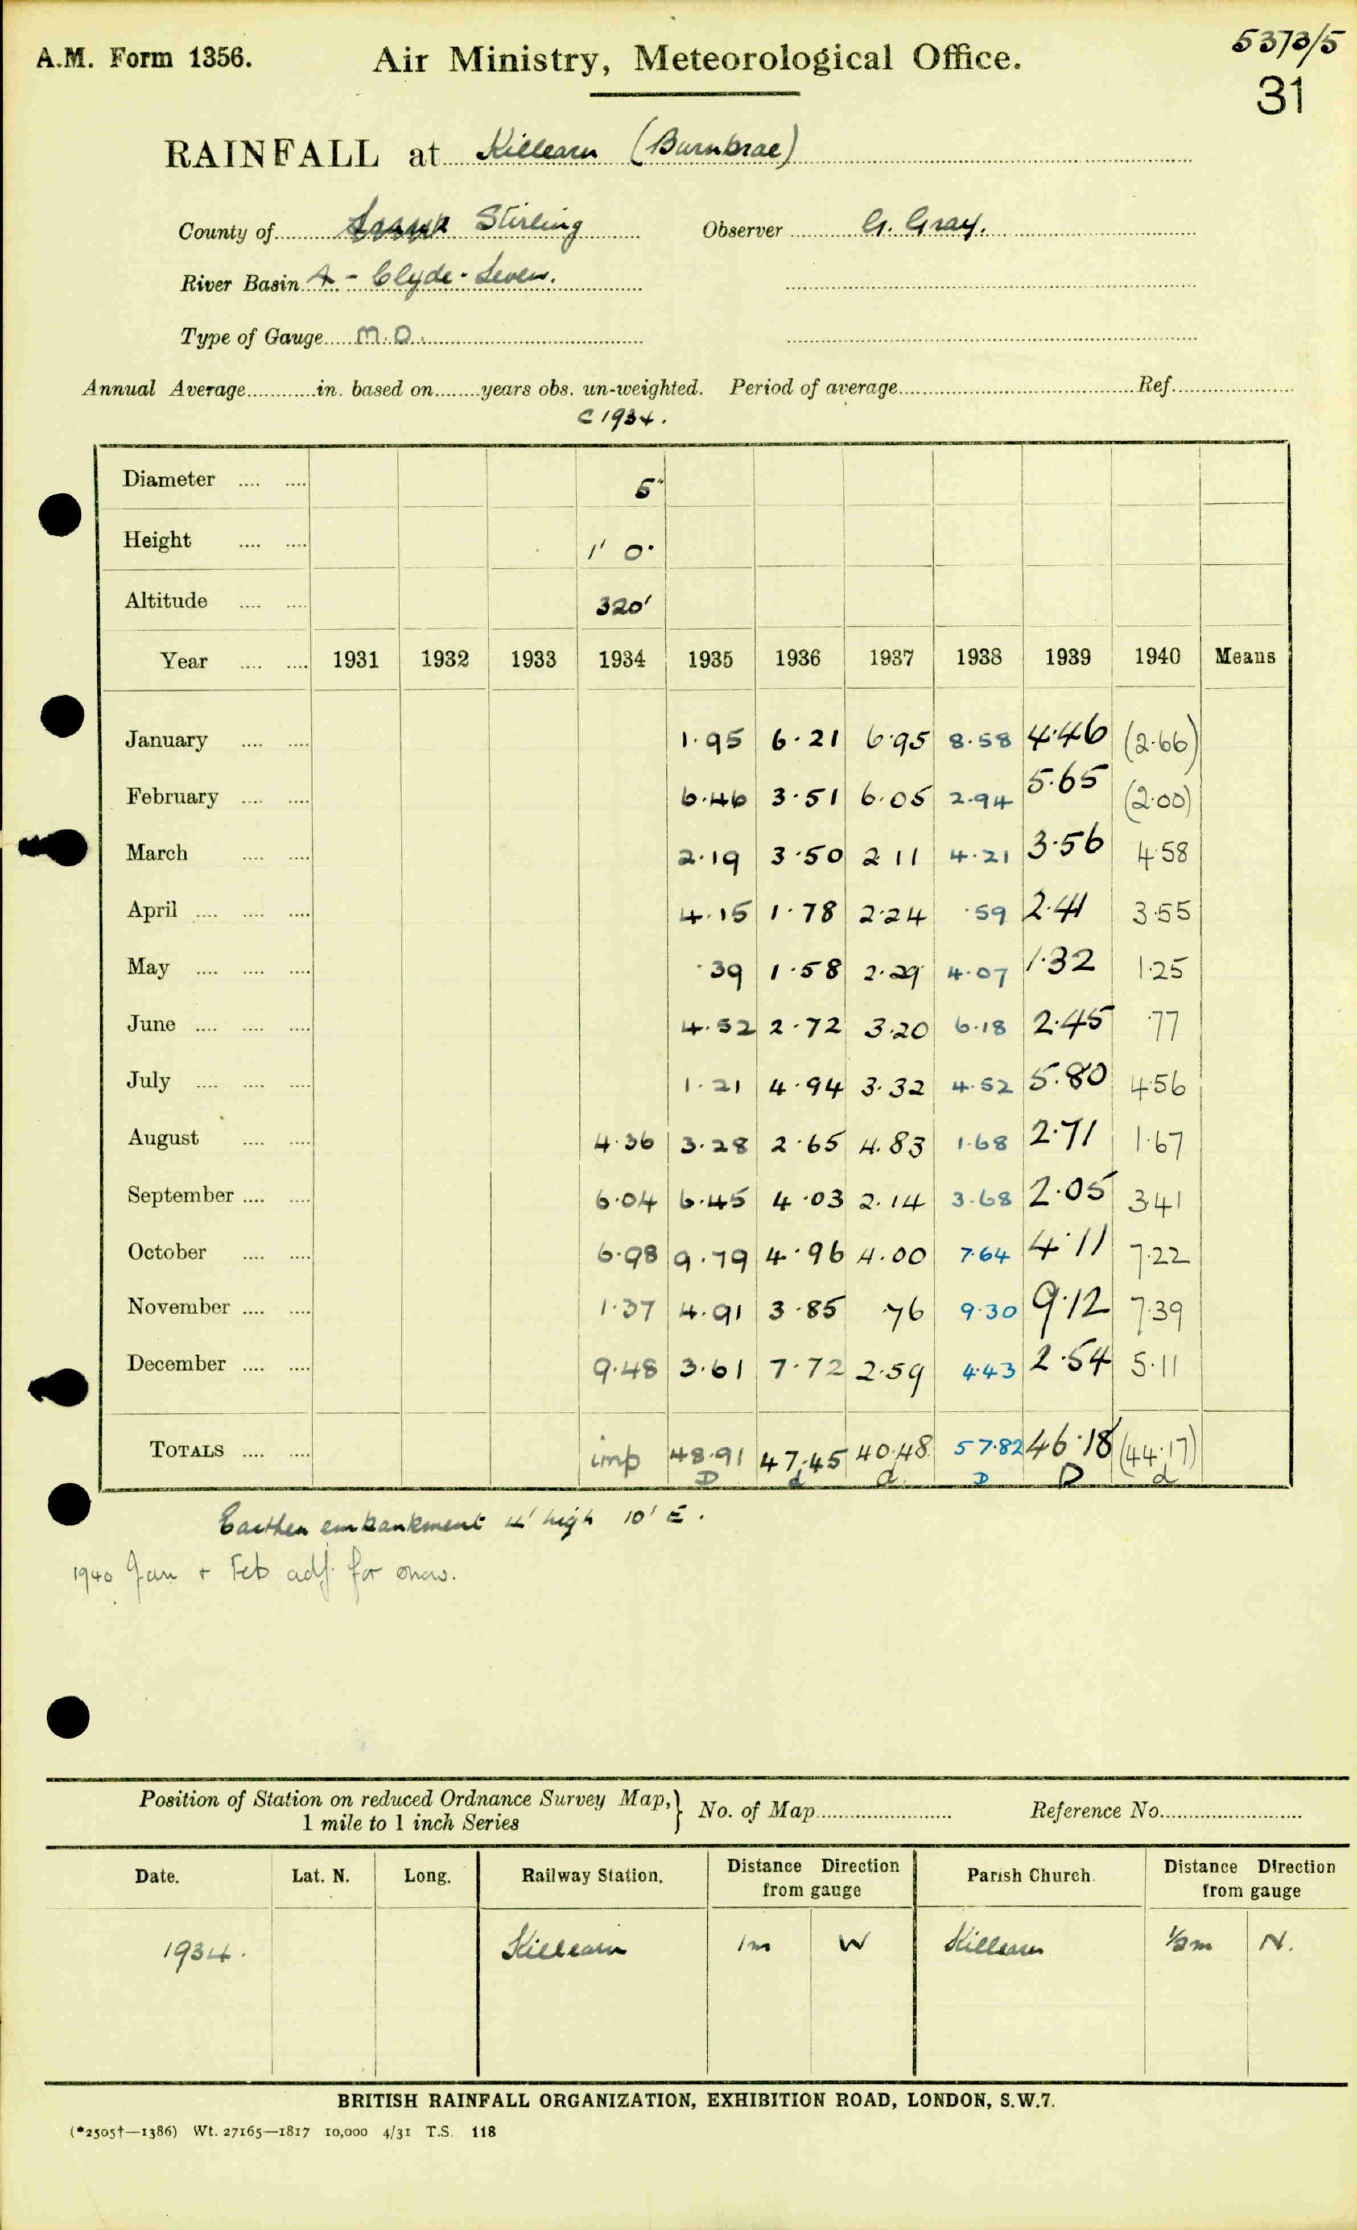 A.M. Form 1356.
Air Ministry, Meteorological Office.
5373/5
31
RAINFALL at Killearn (Burnbrae)
County of Stirling
Observer G. Gray.
River Basin 4 - Clyde - Leven.
Type of Gauge M.O.
Annual Average in. based on years obs. un-weighted. Period of average Ref.
C 1934.
Diameter 5"
Height 1' 0"
Altitude 320'
Year 1931 1932 1933 1934 1935 1936 1937 1938 1939 1940 Means
January 1.95 6.21 6.95 8.58 4.46 (2.66)
February 6.46 3.51 6.05 2.94 5.65 (2.00)
March 2.19 3.50 2.11 4.21 3.56 4.58
April 4.15 1.78 2.24 .59 2.41 3.55
May .39 1.58 2.29 4.07 1.32 1.25
June 4.52 2.72 3.20 6.18 2.45 .77
July 1.21 4.94 3.32 4.52 5.80 4.56
August 4.36 3.28 2.65 4.83 1.68 2.71 1.67
September 6.04 6.45 4.03 2.14 3.68 2.05 3.41
October 6.98 9.79 4.96 4.00 7.64 4.11 7.22
November 1.37 4.91 3.85 .76 9.30 9.12 7.39
December 9.48 3.61 7.72 2.59 4.43 2.54 5.11
TOTALS imp 48.91 47.45 40.48 57.82 46.18 (44.17)
D d d D D d
Earthen embankment 4' high 10' E.
1940 Jan + Feb adj. for snow.
Position of Station on reduced Ordnance Survey Map,} No. of Map Reference No.
1 mile to 1 inch Series
Date. Lat. N. Long. Railway Station. Distance Direction from gauge Parish Church Distance Direction from gauge
1934. Killearn 1m W Killearn 1/2m N.
BRITISH RAINFALL ORGANIZATION, EXHIBITION ROAD, LONDON, S.W.7.
(*2505†—1386) Wt. 27165—1817 10,000 4/31 T.S. 118